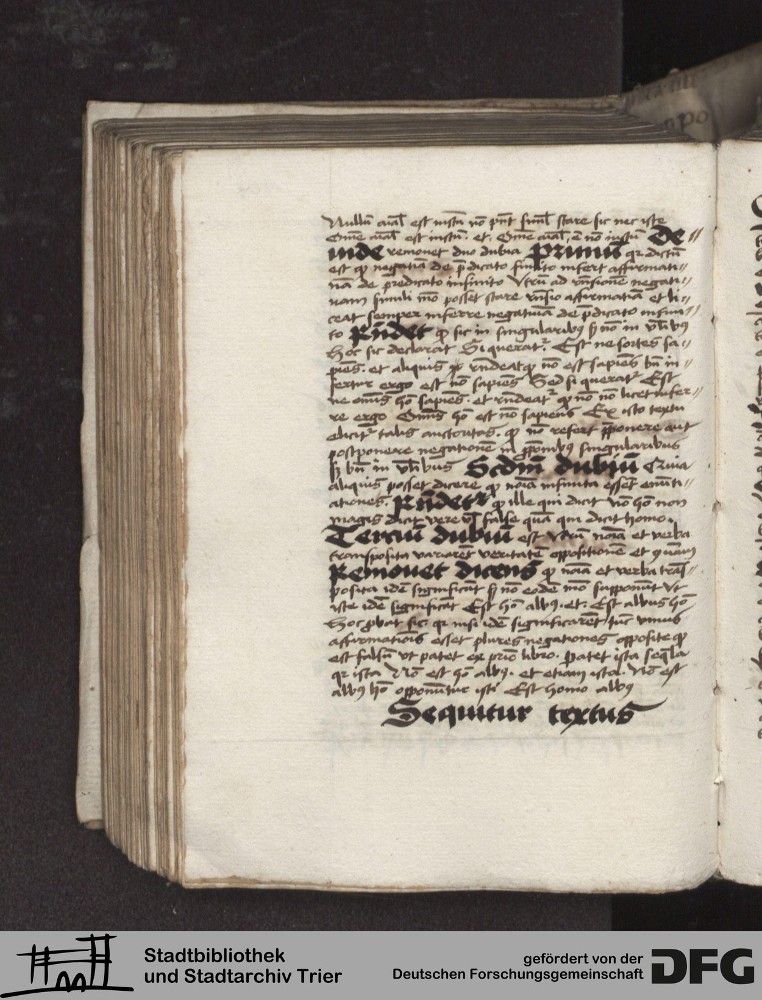 Nullū aīal est iustū nō pn̄t simul stare sic nec iste
Omē aīal est iustū. et. Omē aīal, ē nō iustū De
inde remouet duo dubia Primū qr dictū
est ꝙ negatīa de p̄dicato finito infert affirmati
uā de predicato infinito Vtrū ad r̄nsionē negati
uam simili mō posset stare r̄nsio affirmatīa et li
ceat semper inferre negatiuā de p̄dicato infini
to Rn̄det ꝙ sic in singularibꝰ sꝫ nō in vl̄ibꝰ
hoc sic declarat Si querat᷑ Est ne sortes sa
piēs. et aliquis r̄ndeat ꝙ nō est sapiēs bn̄ in
fertur ergo est nō sapiēs Sed si querat᷑ Est
ne omīs hō sapiēs. et r̄ndeat᷑ ꝙ nō nō licet infer
re ergo Omīs hō est nō sapiens Ex isto textu
elicit᷑ talis auctoritas. ꝙ nō refert p̄ponere aut
postponere negationē in singularibus
sꝫ bn̄ in vl̄ibus Scdm̄ dubiū Cuia
aliquis posset dicere ꝙ noīa infinita essēt enūti
ationes. Rn̄det ꝙ ille qui dicit nō hō non
magis dicit vere vl̄ false quā qui dicit homo.
Terciū dubiū est vtrū noīa et verba
transposita variarēt veritatē oppositionē et
Remouet dicens ꝙ noīa et verba trās
posita idē significāt sꝫ nō eodē mō supponūt Vt
iste idē significāt Est hō albꝰ. et. Est albus hō
hoc ꝓbat sic. qr nisi idē significarēt tūc vnius
affirmationis esset plures negationes opposite ꝙ
est falsū vt patet ex prīo libro. Patet ista seq̄la
qr ista Nō est hō albꝰ. et etiam ista. Nō est
albꝰ hō opponūtur isti Est homo albꝰ
Sequitur textus
Stadtbibliothek
und Stadtarchiv Trier
gefördert von der
Deutschen Forschungsgemeinschaft
DFG